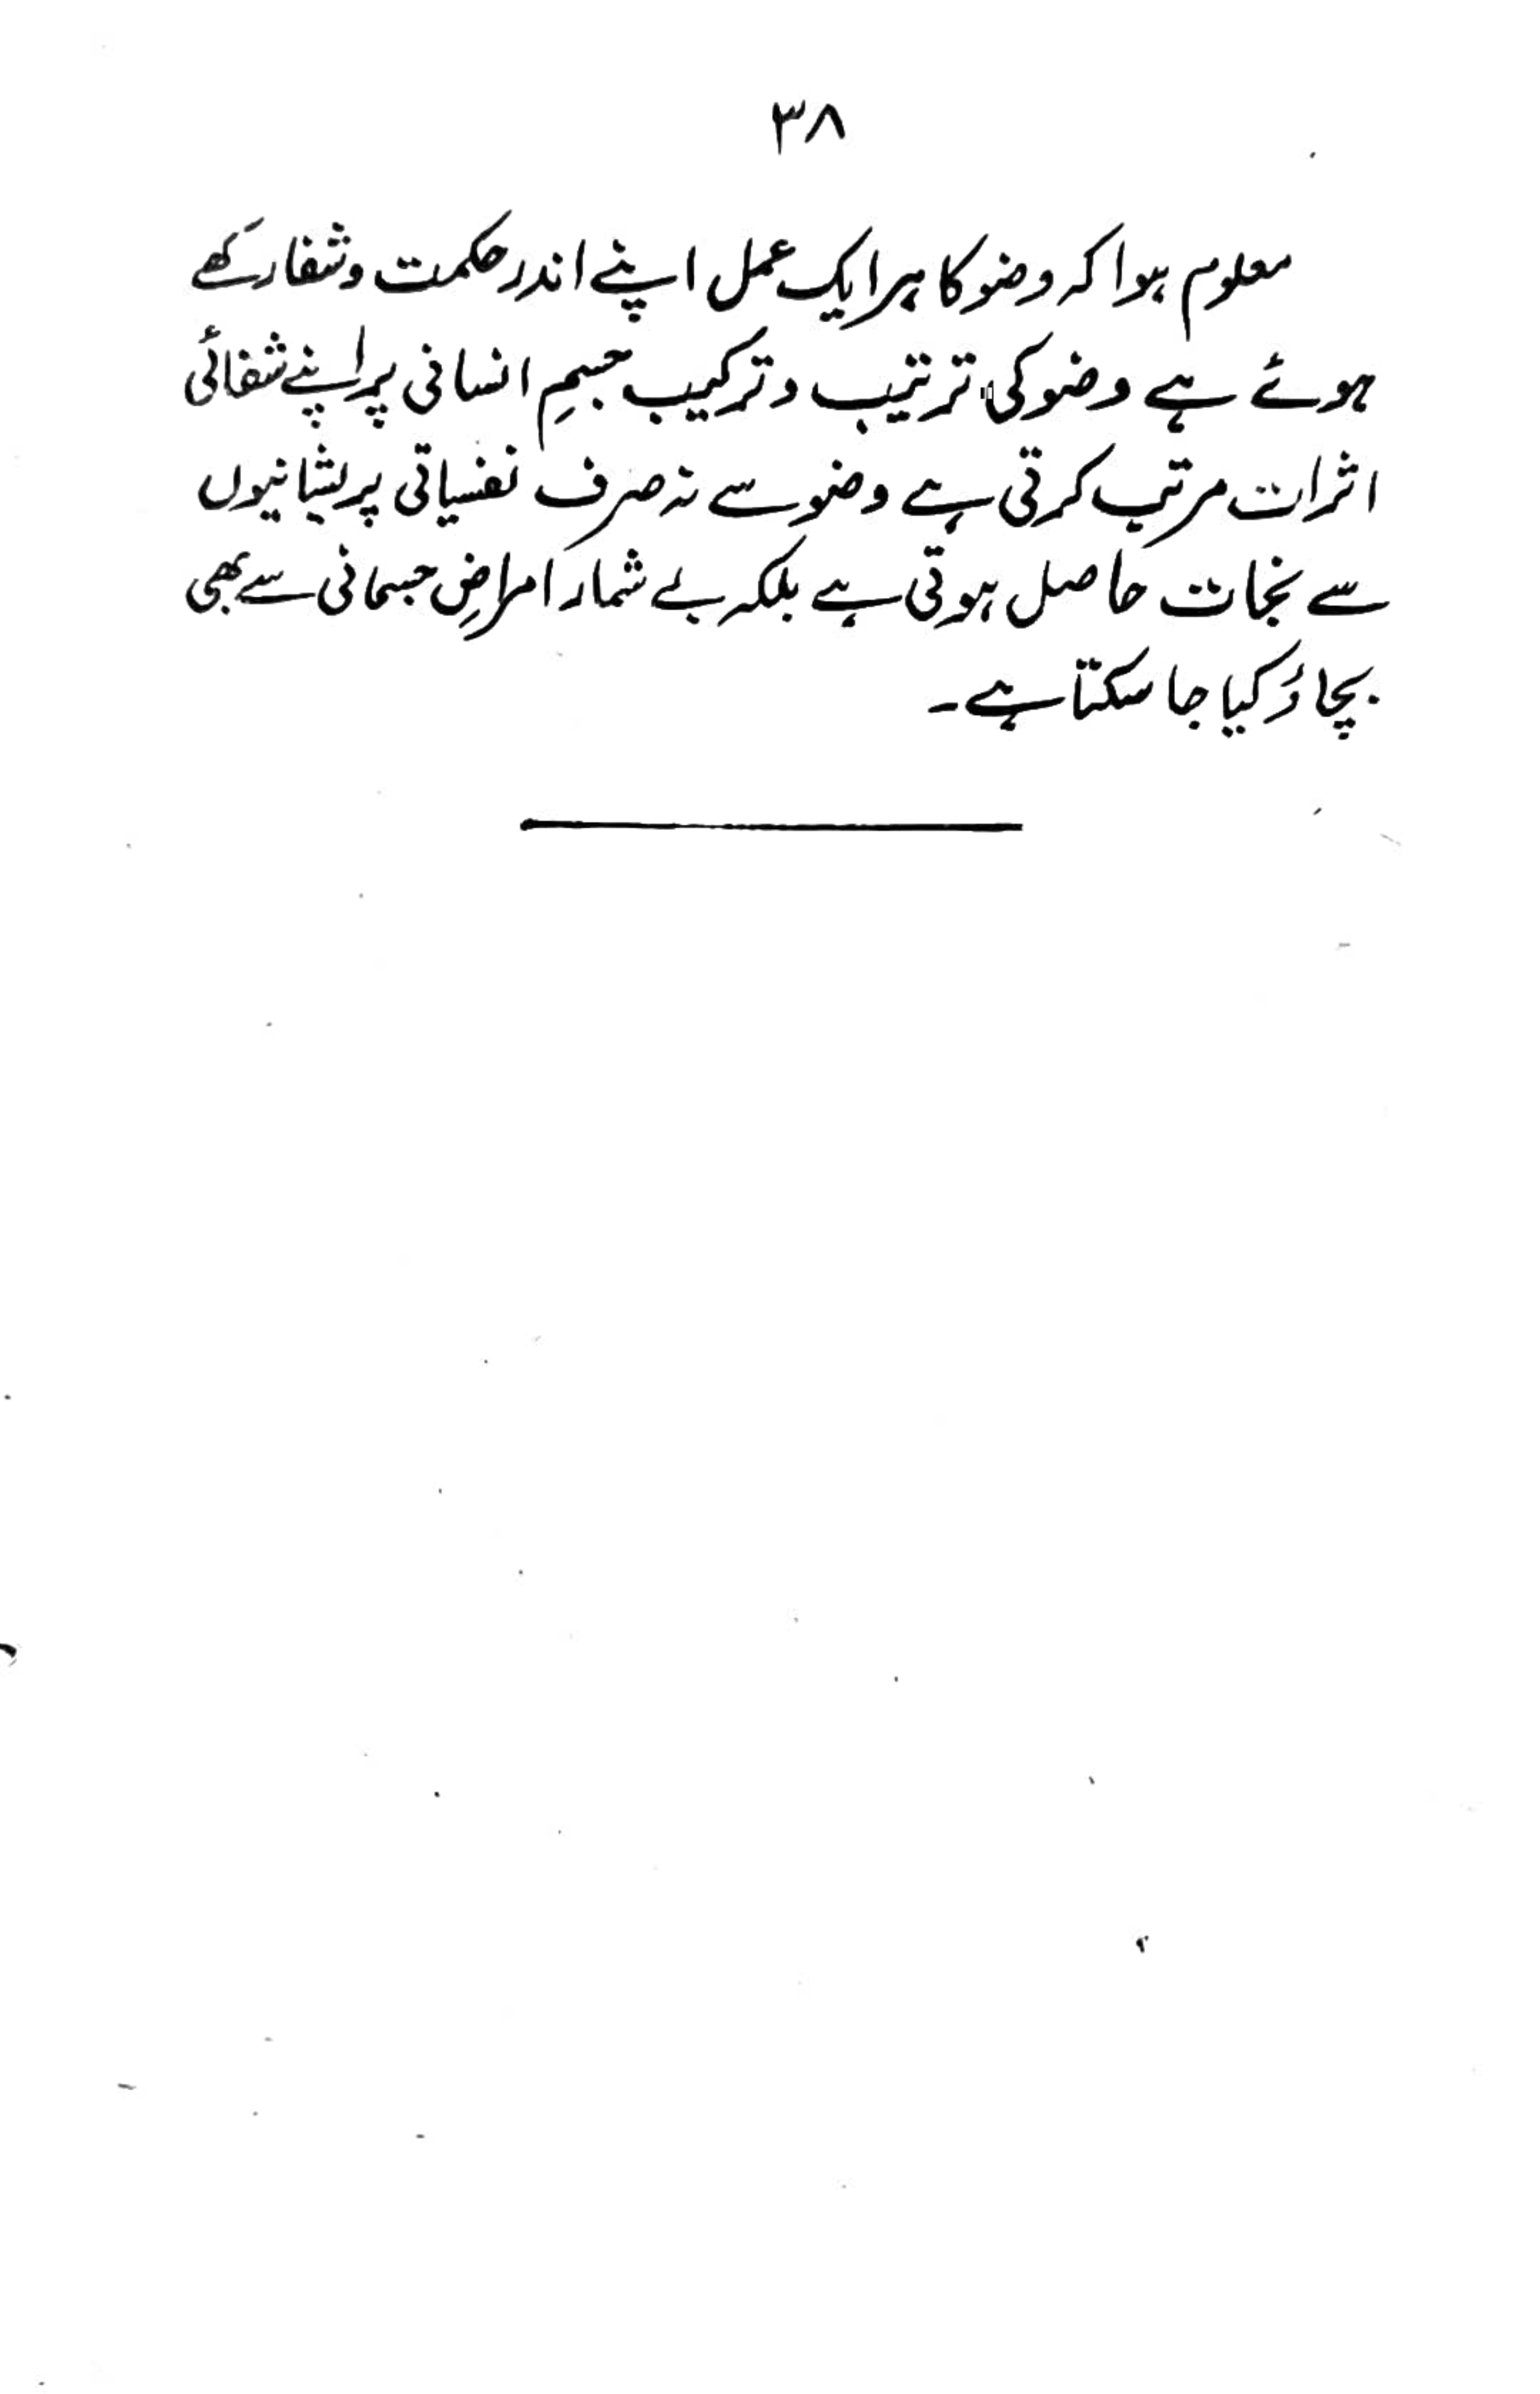 ۳۸
معلوم ہوا کہ وضو کا ہر ایک عمل اپنے اندر حکمت و شفا رکھے
ہوئے ہے وضو کی ترتیب و ترکیب جسمِ انسانی پر اپنے شفائی
اثرات مرتب کرتی ہے وضو سے نہ صرف نفسیاتی پریشانیوں
سے نجات حاصل ہوتی ہے بلکہ بے شمار امراضِ جسمانی سے بھی
بچاؤ کیا جا سکتا ہے۔